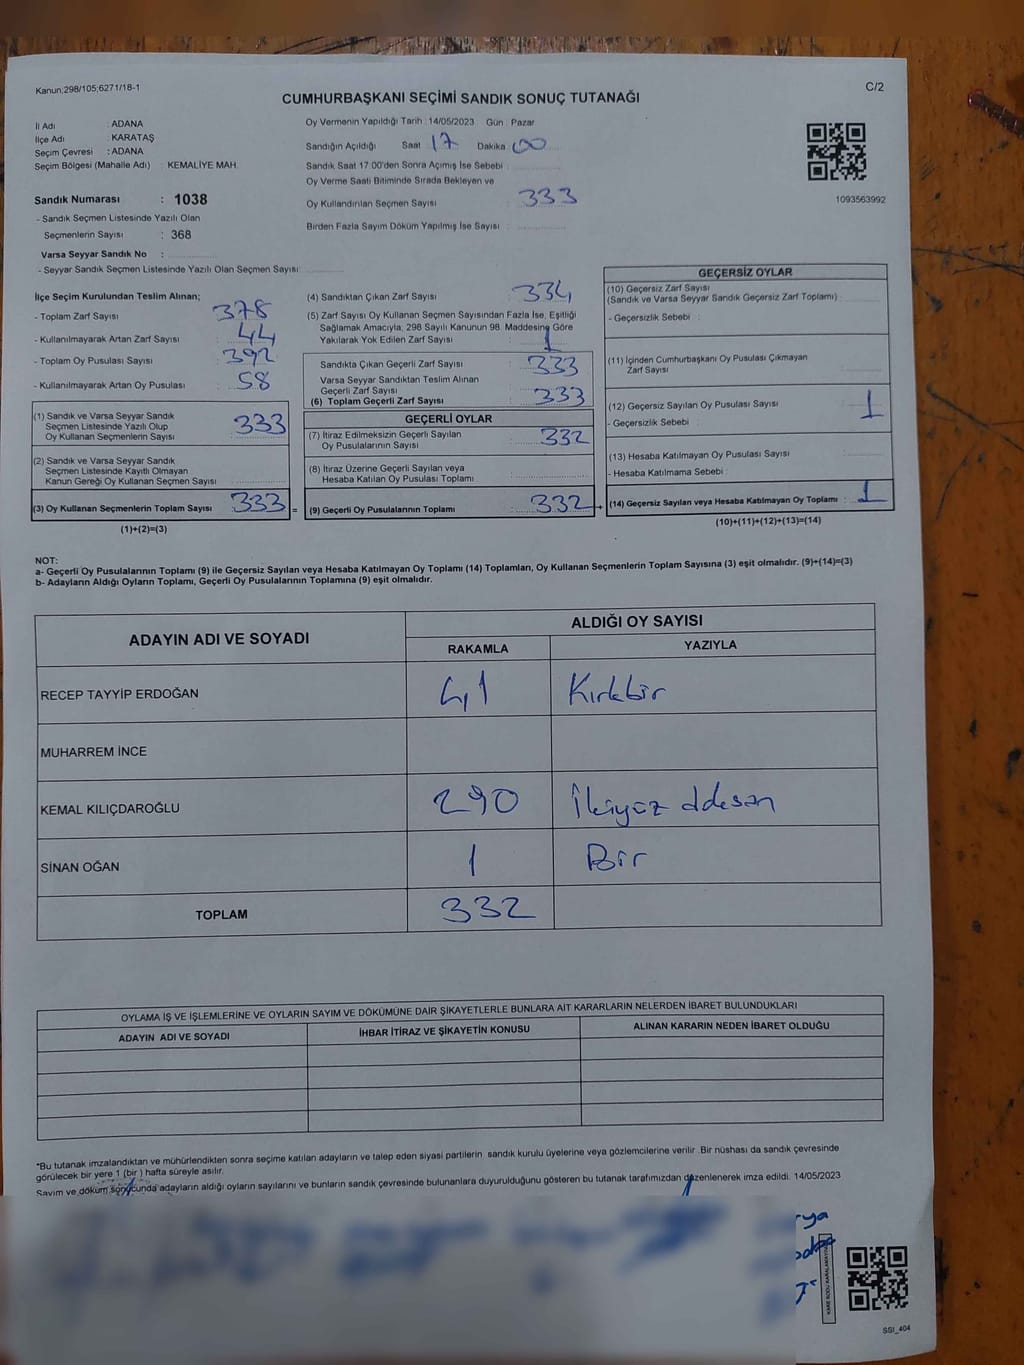 Kanun;298/105;6271/18-1
C/2
CUMHURBAŞKANI SEÇİMİ SANDIK SONUÇ TUTANAĞI
İl Adı : ADANA
İlçe Adı : KARATAŞ
Seçim Çevresi : ADANA
Seçim Bölgesi (Mahalle Adı) : KEMALİYE MAH.
Sandık Numarası : 1038
- Sandık Seçmen Listesinde Yazılı Olan
Seçmenlerin Sayısı : 368
Varsa Seyyar Sandık No :
- Seyyar Sandık Seçmen Listesinde Yazılı Olan Seçmen Sayısı:
Oy Vermenin Yapıldığı Tarih : 14/05/2023 Gün : Pazar
Sandığın Açıldığı Saat 17 Dakika 00
Sandık Saat 17:00'den Sonra Açımış İse Sebebi :
Oy Verme Saati Bitiminde Sırada Bekleyen ve
Oy Kullandırılan Seçmen Sayısı : 333
Birden Fazla Sayım Döküm Yapılmış İse Sayısı :
1093563992
İlçe Seçim Kurulundan Teslim Alınan;
- Toplam Zarf Sayısı : 378
- Kullanılmayarak Artan Zarf Sayısı : 44
- Toplam Oy Pusulası Sayısı : 392
- Kullanılmayarak Artan Oy Pusulası : 58
(1) Sandık ve Varsa Seyyar Sandık
Seçmen Listesinde Yazılı Olup
Oy Kullanan Seçmenlerin Sayısı : 333
(2) Sandık ve Varsa Seyyar Sandık
Seçmen Listesinde Kayıtlı Olmayan
Kanun Gereği Oy Kullanan Seçmen Sayısı :
(3) Oy Kullanan Seçmenlerin Toplam Sayısı : 333
(1)+(2)=(3)
(4) Sandıktan Çıkan Zarf Sayısı : 334
(5) Zarf Sayısı Oy Kullanan Seçmen Sayısından Fazla İse, Eşitliği
Sağlamak Amacıyla; 298 Sayılı Kanunun 98. Maddesine Göre
Yakılarak Yok Edilen Zarf Sayısı : 1
Sandıkta Çıkan Geçerli Zarf Sayısı : 333
Varsa Seyyar Sandıktan Teslim Alınan
Geçerli Zarf Sayısı :
(6) Toplam Geçerli Zarf Sayısı : 333
GEÇERLİ OYLAR
(7) İtiraz Edilmeksizin Geçerli Sayılan
Oy Pusulalarının Sayısı : 332
(8) İtiraz Üzerine Geçerli Sayılan veya
Hesaba Katılan Oy Pusulası Toplamı :
= (9) Geçerli Oy Pusulalarının Toplamı : 332 +
GEÇERSİZ OYLAR
(10) Geçersiz Zarf Sayısı
(Sandık ve Varsa Seyyar Sandık Geçersiz Zarf Toplamı) :
- Geçersizlik Sebebi :
(11) İçinden Cumhurbaşkanı Oy Pusulası Çıkmayan
Zarf Sayısı :
(12) Geçersiz Sayılan Oy Pusulası Sayısı : 1
- Geçersizlik Sebebi :
(13) Hesaba Katılmayan Oy Pusulası Sayısı :
- Hesaba Katılmama Sebebi :
(14) Geçersiz Sayılan veya Hesaba Katılmayan Oy Toplamı : 1
(10)+(11)+(12)+(13)=(14)
NOT:
a- Geçerli Oy Pusulalarının Toplamı (9) ile Geçersiz Sayılan veya Hesaba Katılmayan Oy Toplamı (14) Toplamları, Oy Kullanan Seçmenlerin Toplam Sayısına (3) eşit olmalıdır. (9)+(14)=(3)
b- Adayların Aldığı Oyların Toplamı, Geçerli Oy Pusulalarının Toplamına (9) eşit olmalıdır.
ADAYIN ADI VE SOYADI
ALDIĞI OY SAYISI
RAKAMLA YAZIYLA
RECEP TAYYİP ERDOĞAN 41 Kırkbir
MUHARREM İNCE
KEMAL KILIÇDAROĞLU 290 İkiyüz
SİNAN OĞAN 1 Bir
TOPLAM 332
OYLAMA İŞ VE İŞLEMLERİNE VE OYLARIN SAYIM VE DÖKÜMÜNE DAİR ŞİKAYETLERLE BUNLARA AİT KARARLARIN NELERDEN İBARET BULUNDUKLARI
ADAYIN ADI VE SOYADI İHBAR İTİRAZ VE ŞİKAYETİN KONUSU ALINAN KARARIN NEDEN İBARET OLDUĞU
*Bu tutanak imzalandıktan ve mühürlendikten sonra seçime katılan adayların ve talep eden siyasi partilerin sandık kurulu üyelerine veya gözlemcilerine verilir. Bir nüshası da sandık çevresinde
görülecek bir yere 1 (bir) hafta süreyle asılır.
Sayım ve döküm sonucunda adayların aldığı oyların sayılarını ve bunların sandık çevresinde bulunanlara duyurulduğunu gösteren bu tutanak tarafımızdan düzenlenerek imza edildi. 14/05/2023
SGI_404